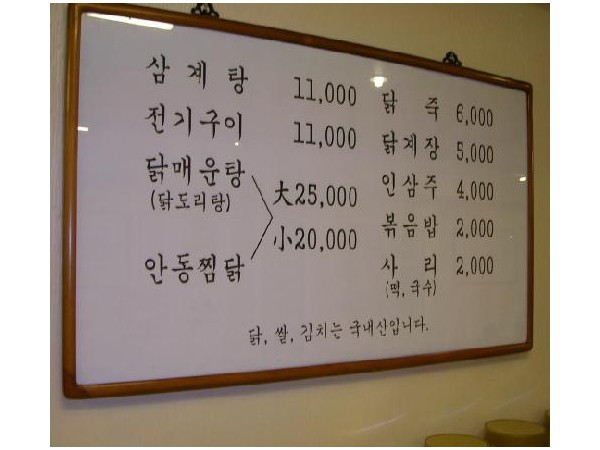 삼계탕 11,000
전기구이 11,000
닭매운탕
(닭도리탕)
大25,000
小20,000
안동찜닭
닭죽 6,000
닭계장 5,000
인삼주 4,000
볶음밥 2,000
사리 2,000
(떡, 국수)
닭, 쌀, 김치는 국내산입니다.